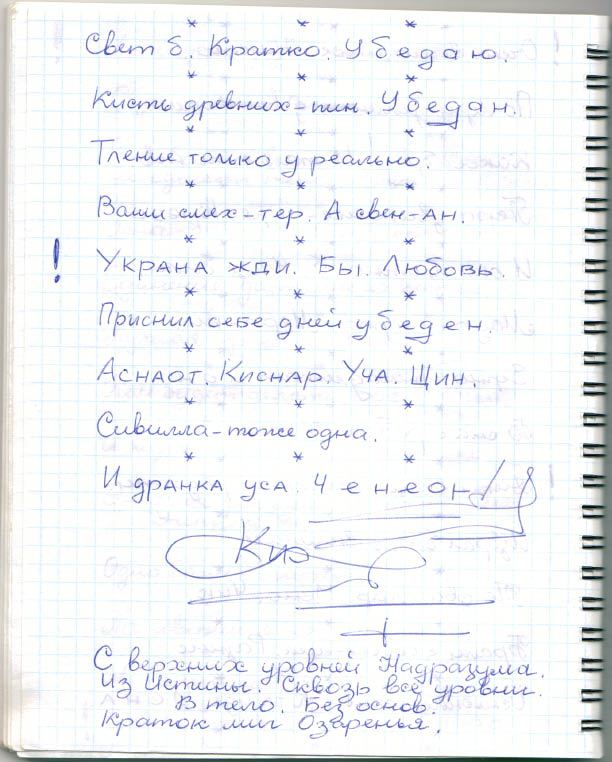 * * *
Свет б. Кратко. Убедаю.
* * *
Кисть древних-пин. Убедан.
* * *
Тление только у реально.
* * *
Ваши смех-тер. А свен-Ан.
* * *
! Украна жди. Бы. Любовь.
* * *
Приснил себе дней убеден.
* * *
Аснаот. Киснар. Уча. Щин.
* * *
Сивилла-тоже одна.
* * *
И дранка уса. Ч е н е о н
С верхних уровней Надразума.
Из Истины. Сквозь все уровни.
В тело. Без основ.
Краток миг Озаренья.